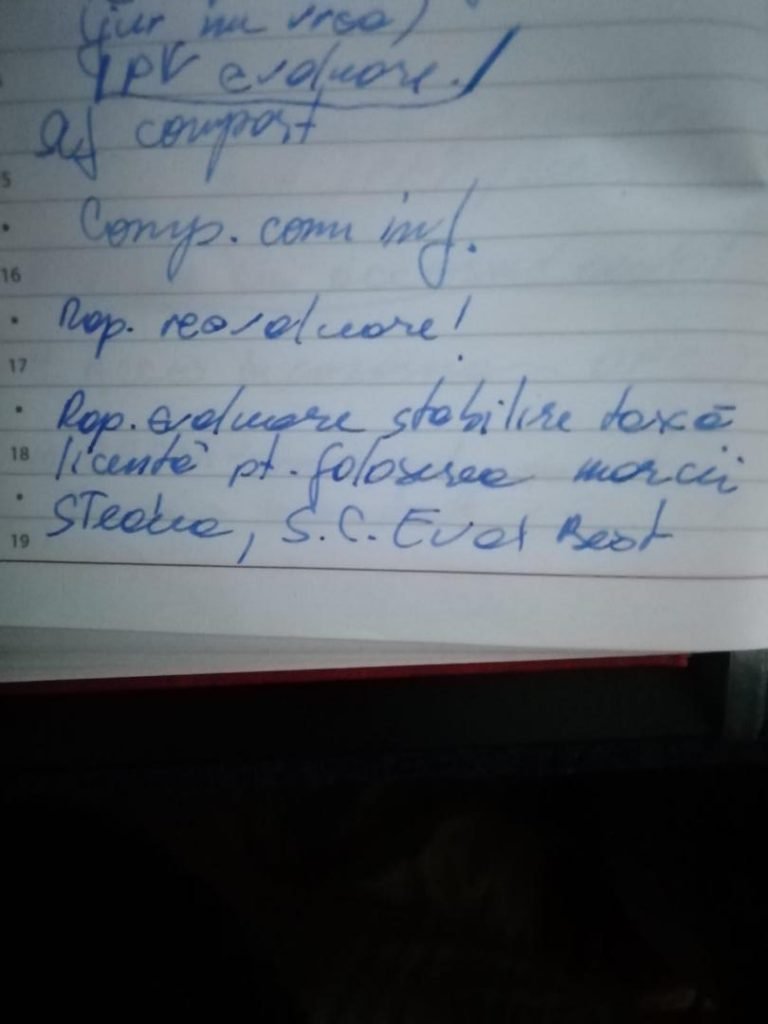 (jur nu vrea)
PV evaluare.
Of comport
5
Comp. com inf.
16
Rap. reevaluare!
17
Rap. evaluare stabilire taxă
18 licență pt. folosirea mărcii
Steaua, S.C. Eval Best
19